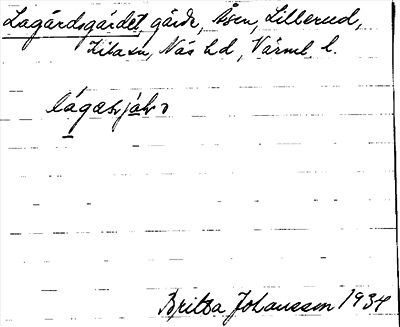 Lagårdsgärdet, gärde, Åsen, Lillerud,
Kila sn, Näs hd, Värml. l.
Britta Johansson 1934